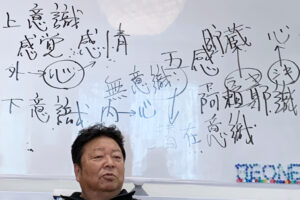 上意識
感覚 感情
外→心
無意識
五感
貯蔵 心
下意識 内→心
阿頼耶識
潜在意識